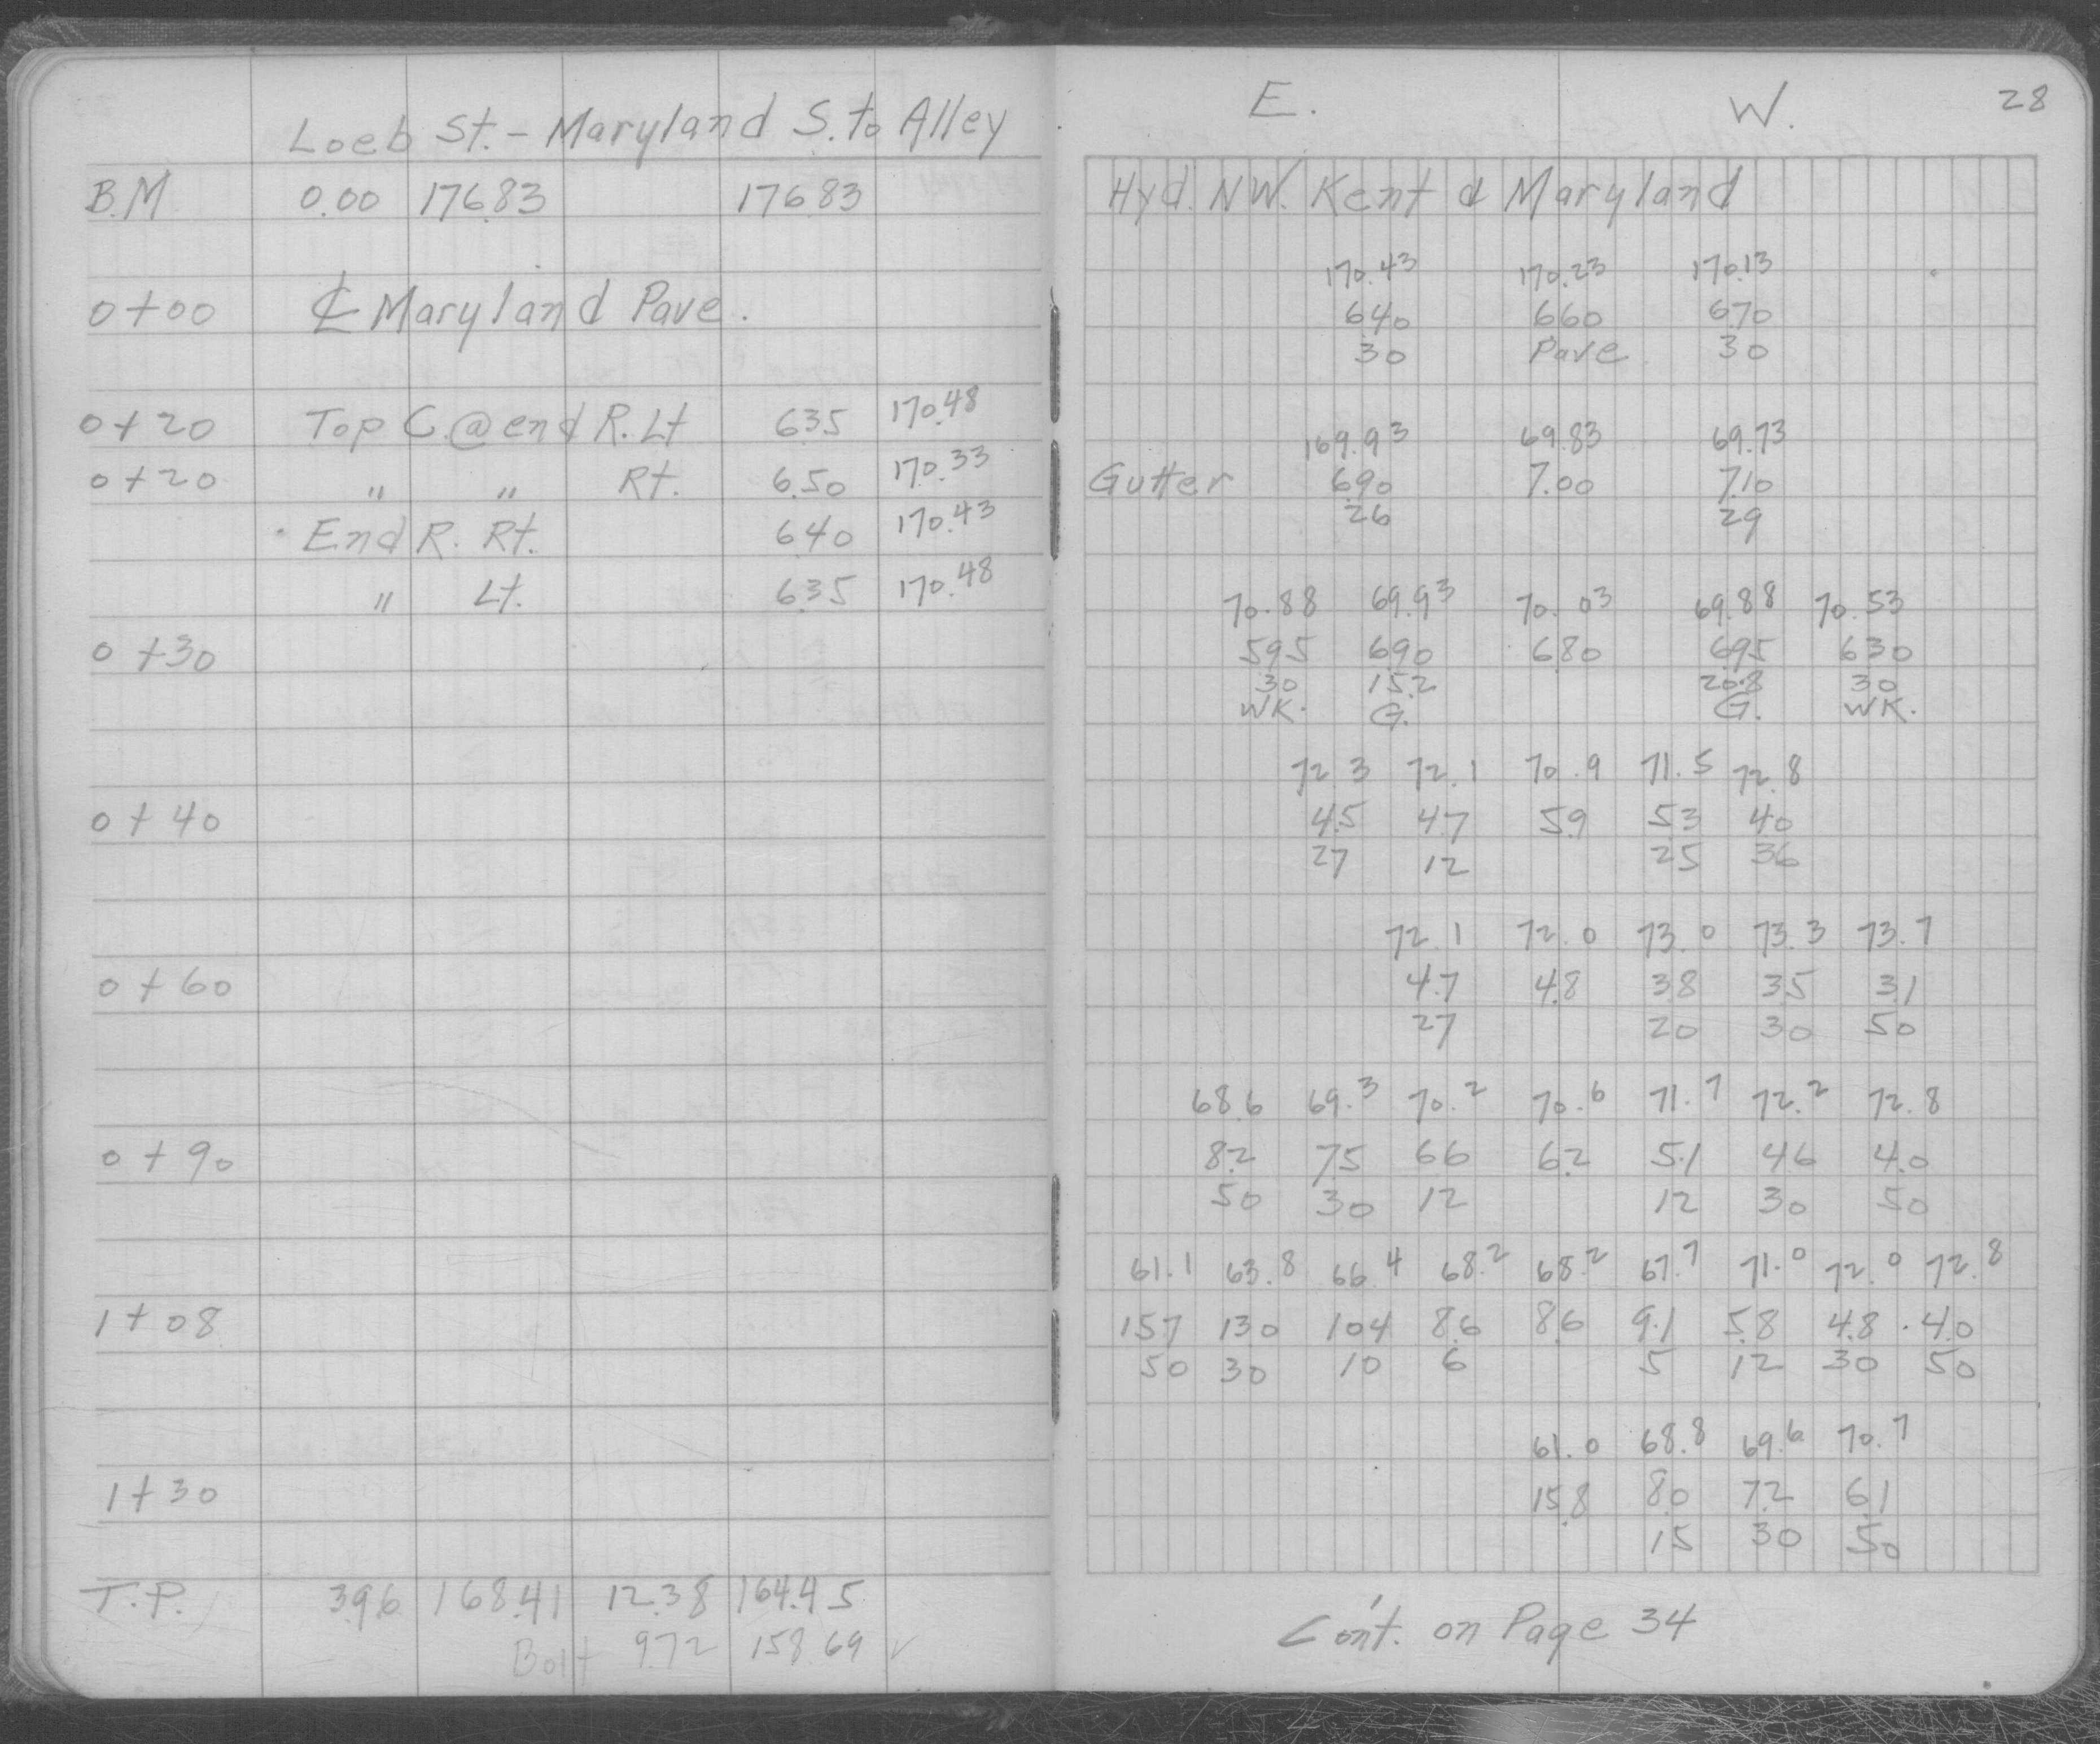 Loeb St. - Maryland S. to Alley
B.M. 0.00 176.83 176.83
0+00 ℄ Maryland Pave.
0+20 Top C. @ end R. Lt 6.35 170.48
0+20 " " Rt. 6.50 170.33
End R. Rt. 6.40 170.43
" Lt. 6.35 170.48
0+30
0+40
0+60
0+90
1+08
1+30
T.P. 3.96 168.41 12.38 164.45
Bolt 9.72 158.69 ✓
E. W. 28
Hyd. N.W. Kent & Maryland
170.43 170.23 170.13
6.40 6.60 6.70
30 Pave 30
169.93 69.83 69.73
Gutter 6.90 7.00 7.10
26 29
70.88 69.93 70.03 69.88 70.53
5.95 6.90 6.80 6.95 6.30
30 15.2 20.8 30
WK. G. G. WK.
72.3 72.1 70.9 71.5 72.8
4.5 4.7 5.9 5.3 4.0
27 12 25 36
72.1 72.0 73.0 73.3 73.7
4.7 4.8 3.8 3.5 3.1
27 20 30 50
68.6 69.3 70.2 70.6 71.7 72.2 72.8
8.2 7.5 6.6 6.2 5.1 4.6 4.0
50 30 12 12 30 50
61.1 63.8 66.4 68.2 68.2 67.7 71.0 72.0 72.8
15.7 13.0 10.4 8.6 8.6 9.1 5.8 4.8 4.0
50 30 10 6 5 12 30 50
61.0 68.8 69.6 70.7
15.8 8.0 7.2 6.1
15 30 50
Con't. on Page 34